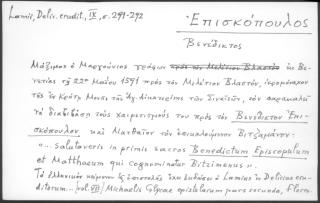 Lamii, Delic. erudit., IX, σ. 291-292
Ἐπισκόπουλος
Βενέδικτος
Μάξιμος ὁ Μαργούνιος γράφων πρὸς τὸν Μελέτιον Βλαστὸν ἐκ Βε-
νετίας τῇ 22ᾳ Μαΐου 1591 πρὸς τὸν Μελέτιον Βλαστόν, ἱερομόναχον
τῆς ἐν Κρήτῃ Μονῆς τῆς Ἁγ. Αἰκατερίνης τῶν Σιναϊτῶν, τὸν παρακαλεῖ
νὰ διαβιβάσῃ τοὺς χαιρετισμούς του πρὸς τὸν Βενέδικτον Ἐπι-
σκόπουλον καὶ Ματθαῖον τὸν ἐπικαλούμενον Βιτζαμᾶνον:
"... salutaveris in primis sacros Benedictum Episcopulum
et Matthaeum qui cognominatur Bitzimanus".
Τὸ ἑλληνικὸν κείμενον τῆς ἐπιστολῆς ἔχει ἐκδώσει ὁ Lamius in Deliciae eru-
ditorum... [vol. VII] Michaelis Glycae epistolarum pars secunda, Floren.